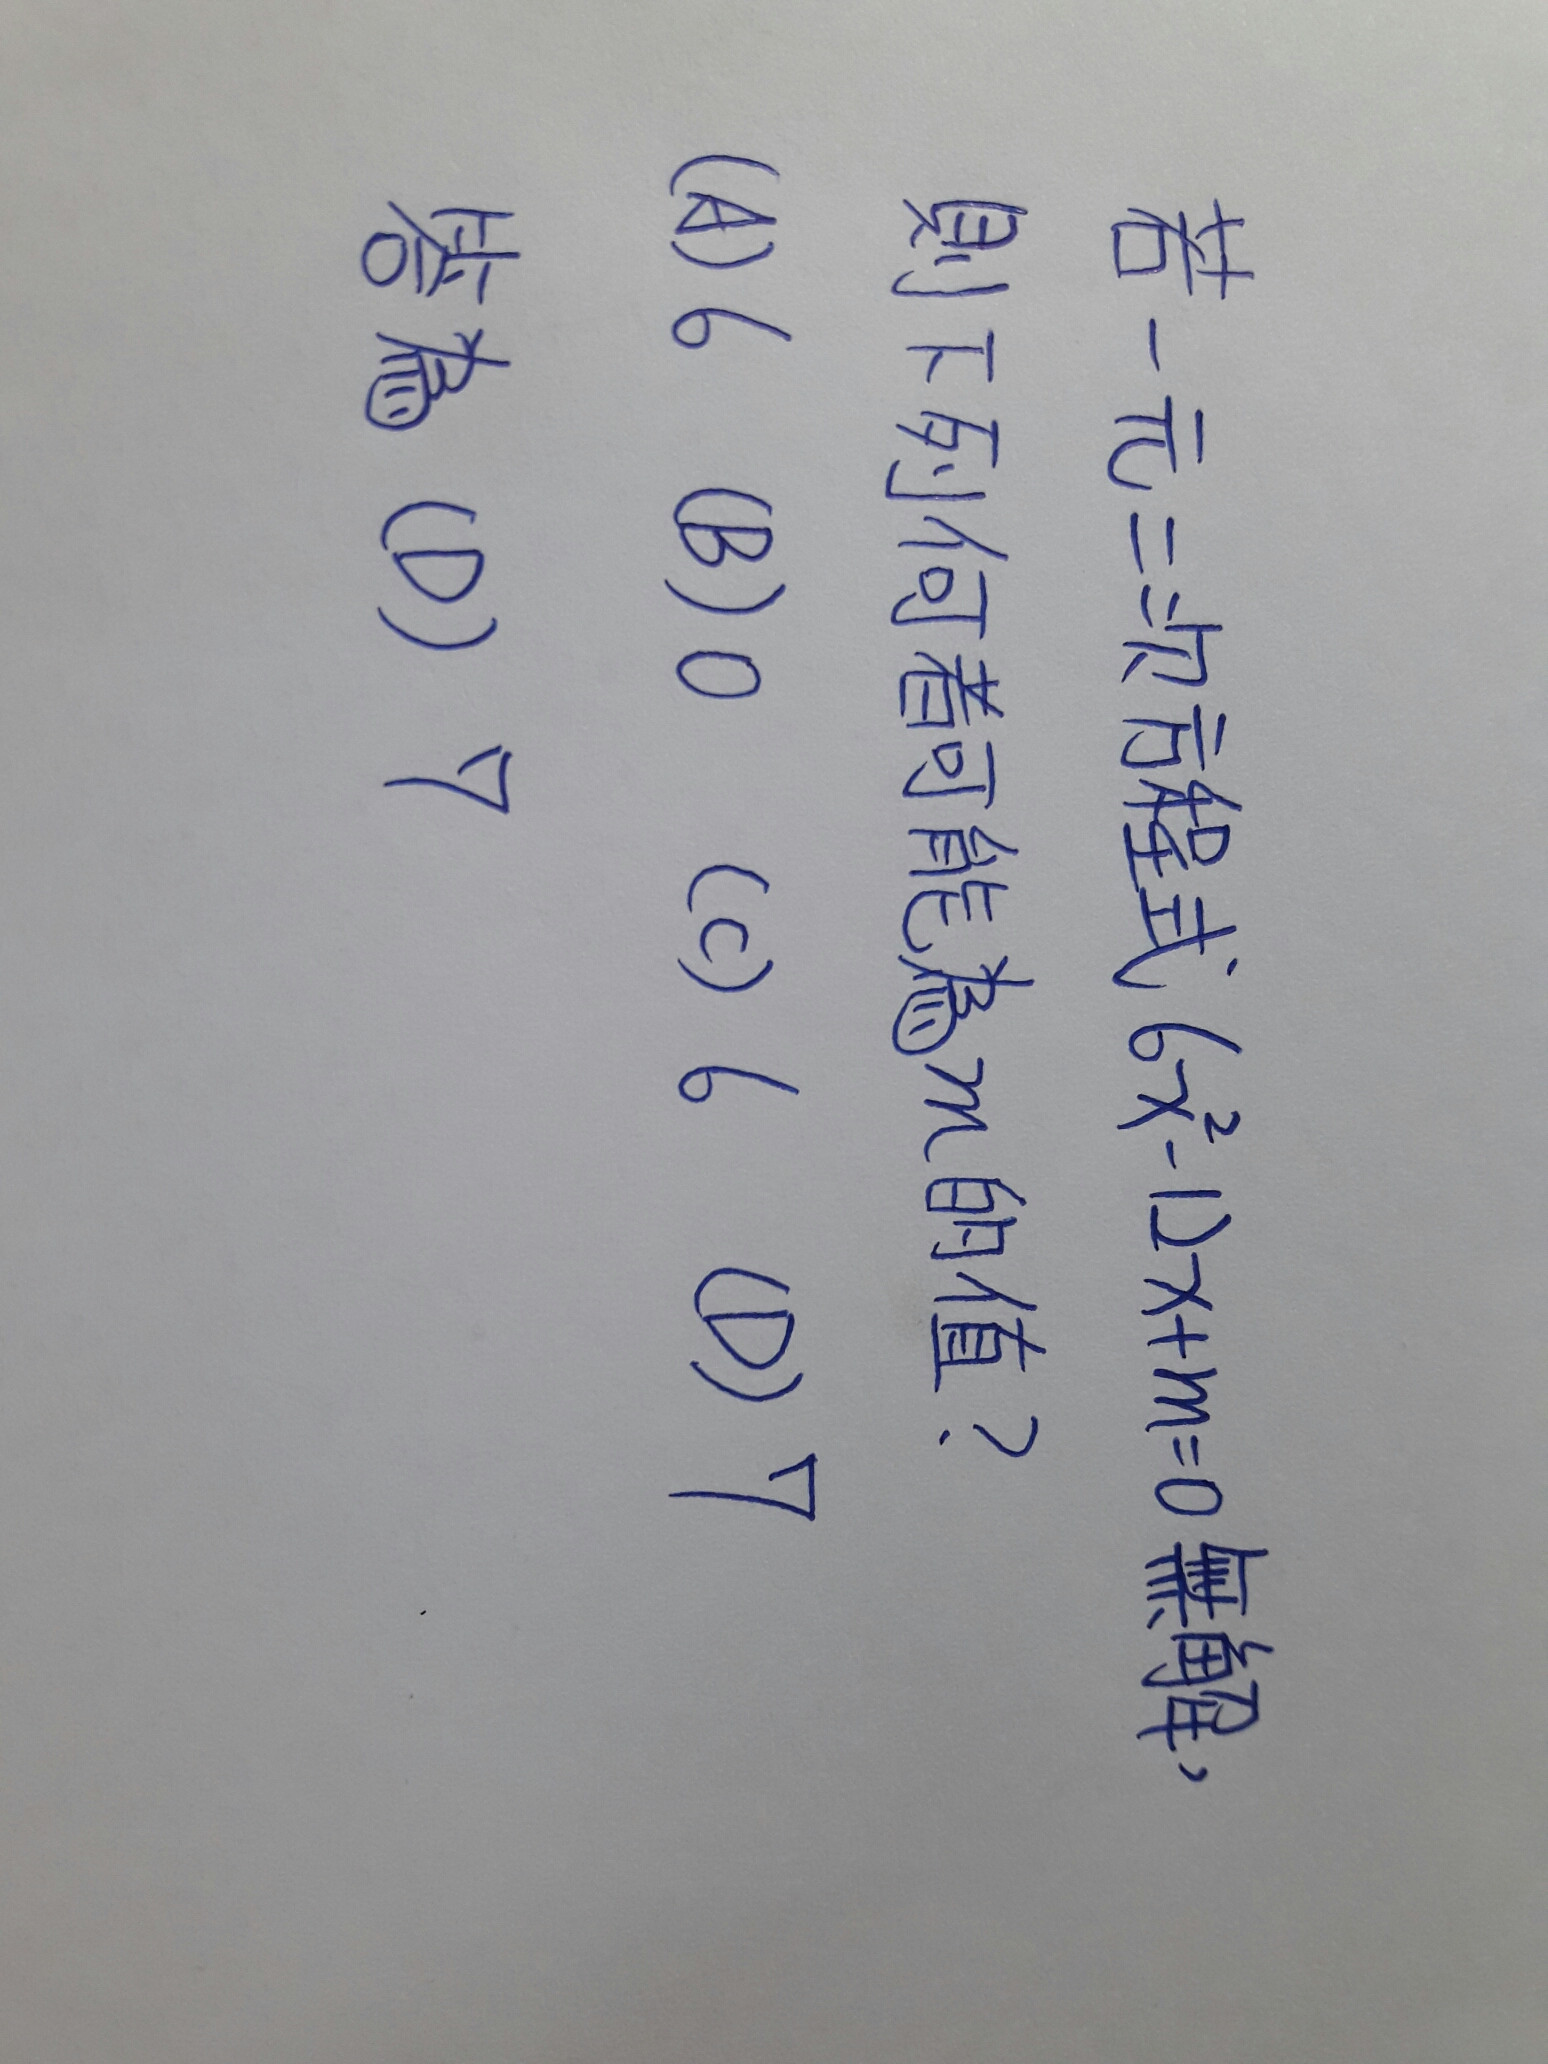 若一元二次方程式6x²-12x+m=0無解，
則下列何者可能為m的值？
(A) 6 (B) 0 (C) 6 (D) 7
答為 (D) 7